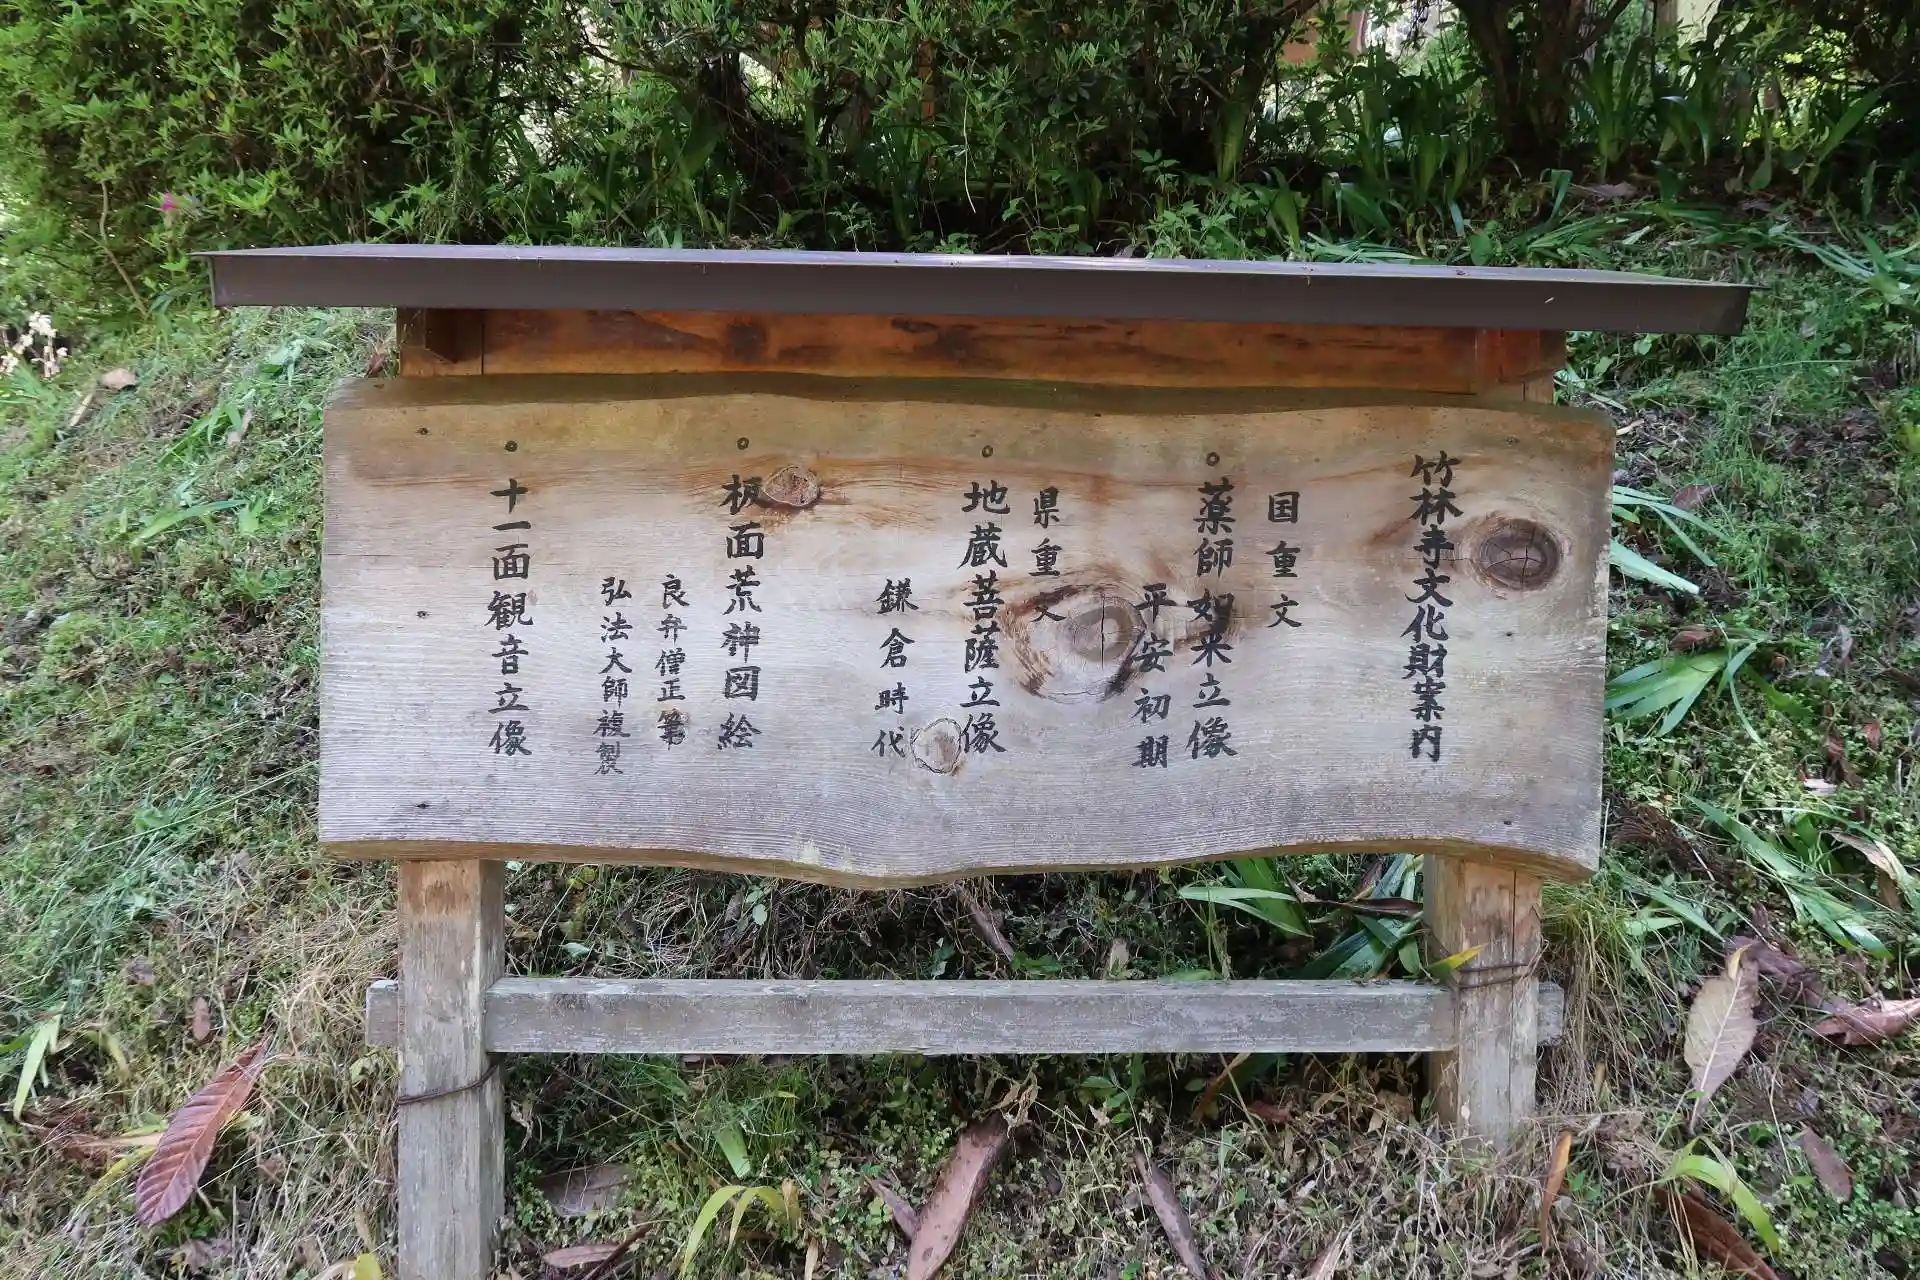 竹林寺文化財案内
国重文
薬師如来立像
平安初期
県重文
地蔵菩薩立像
鎌倉時代
板面荒神図絵
良弁僧正筆
弘法大師複製
十一面観音立像